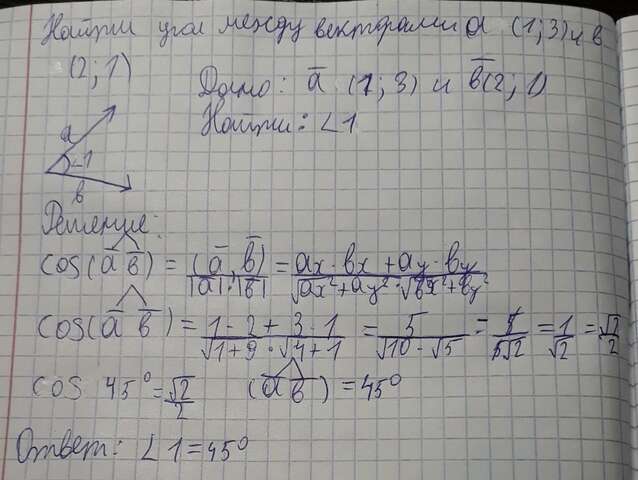 Найти угол между векторами a (1;3) и в
(2;1)
Дано: a̅ (1;3) и в̅(2;1)
Найти: ∠1
a
∠1
в
Решение:
cos(a̅ в̅) = (a̅, в̅)/|a̅|·|в̅| = ax·вx + ay·вy/√ax²+ay²·√вx²+вy²
cos(a̅ в̅) = 1·2+3·1/√1+9·√4+1 = 5/√10·√5 = 5/5√2 = 1/√2 = √2/2
cos 45° = √2/2 (a̅ в̅) = 45°
Ответ: ∠1=45°